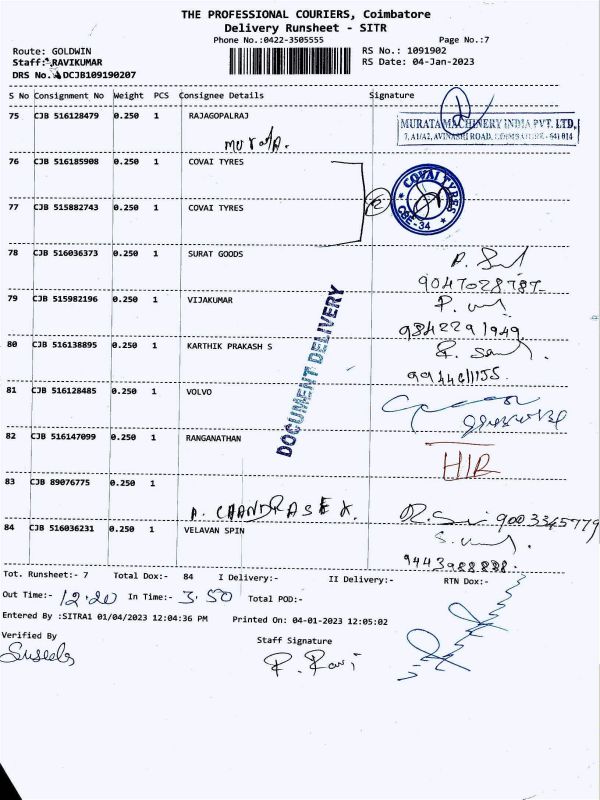 THE PROFESSIONAL COURIERS, Coimbatore
Delivery Runsheet - SITR
Phone No.:0422-3505555 Page No.:7
Route: GOLDWIN RS No.: 1091902
Staff: RAVIKUMAR RS Date: 04-Jan-2023
DRS No. DCJB109190207
S No Consignment No Weight PCS Consignee Details Signature
75 CJB 516128479 0.250 1 RAJAGOPALRAJ
MURATA MACHINERY INDIA PVT. LTD,
7, A1/A2, AVINASHI ROAD, COIMBATORE - 641 014
76 CJB 516185908 0.250 1 COVAI TYRES
COVAI TYRES
CBE-34
77 CJB 515882743 0.250 1 COVAI TYRES
78 CJB 516036373 0.250 1 SURAT GOODS
79 CJB 515982196 0.250 1 VIJAKUMAR
9842291949
80 CJB 516138895 0.250 1 KARTHIK PRAKASH S
DOCUMENT DELIVERY
81 CJB 516128485 0.250 1 VOLVO
82 CJB 516147099 0.250 1 RANGANATHAN
83 CJB 89076775 0.250 1
A. CHANDRASEK. 9003345779
84 CJB 516036231 0.250 1 VELAVAN SPIN
Tot. Runsheet:- 7 Total Dox:- 84 I Delivery:- II Delivery:- RTN Dox:-
Out Time:- 12.20 In Time:- 3.50 Total POD:-
Entered By :SITRA1 01/04/2023 12:04:36 PM Printed On: 04-01-2023 12:05:02
Verified By Staff Signature
R. Ravi